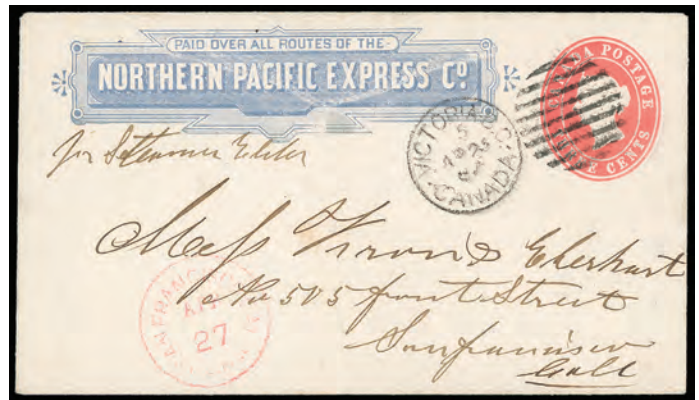 PAID OVER ALL ROUTES OF THE
NORTHERN PACIFIC EXPRESS Co
CANADA POSTAGE
THREE CENTS
VICTORIA B.C.
5
AP 25
CANADA
per Steamer Elder
Mess Eberhart
No 505 front Street
San francisco
Call
SAN FRANCISCO
27